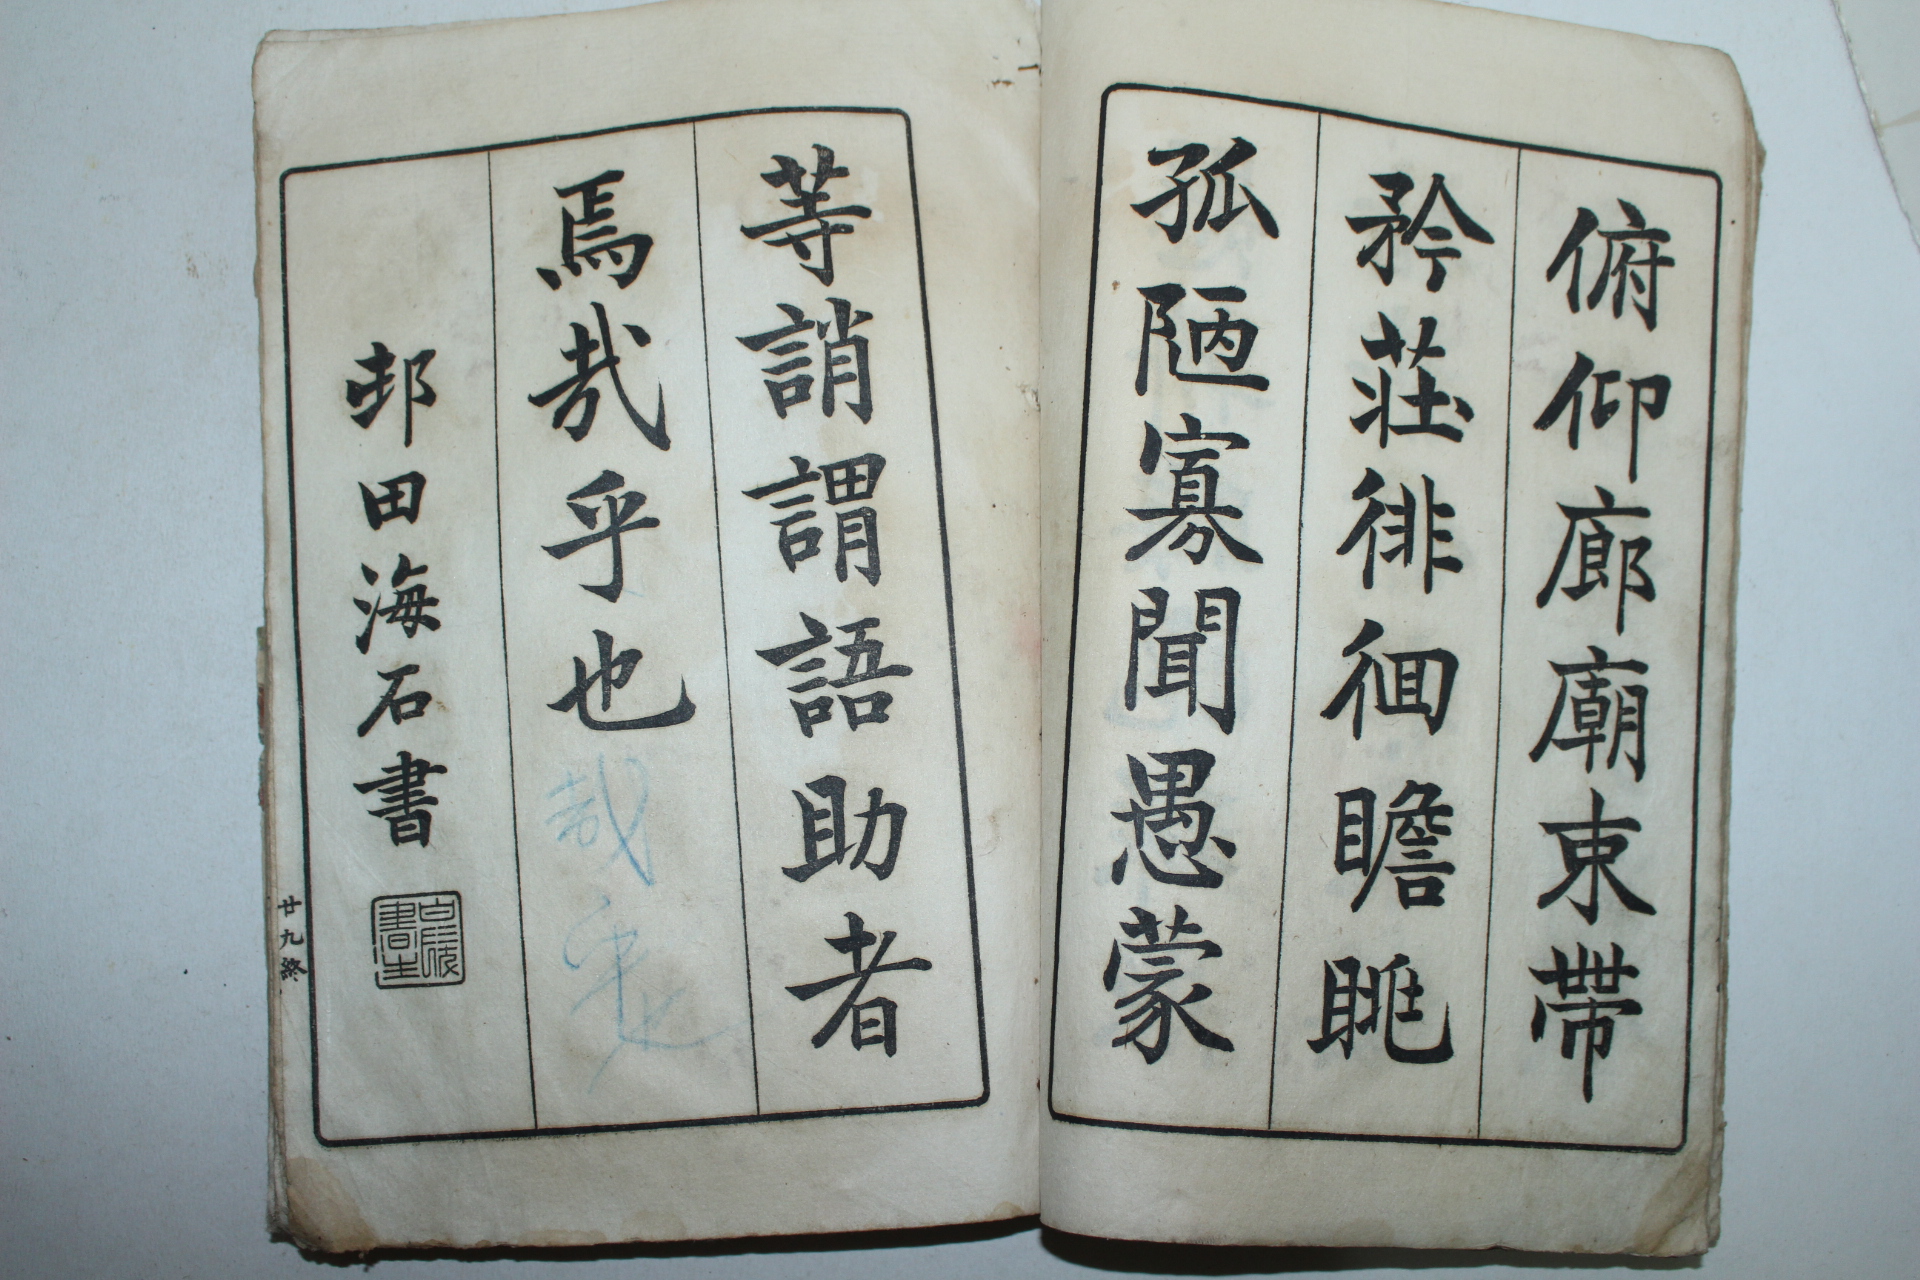 俯仰廊廟束帶
矜莊徘徊瞻眺
孤陋寡聞愚蒙
等誚謂語助者
焉哉乎也
哉乎也
邨田海石書
廿九終